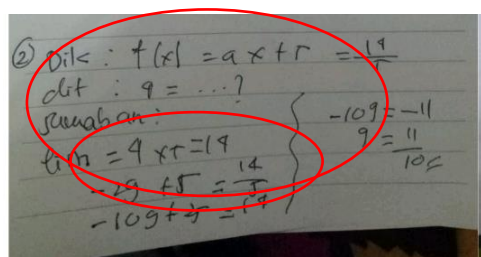 ② Dik : f(x) = ax + 5 = 14/5
dit : a = ... ?
Jawaban :
lim = 9 x + = 14
-2a + 5 = 14/5
-10a + 5 = 14
-10a = -11
a = 11/10